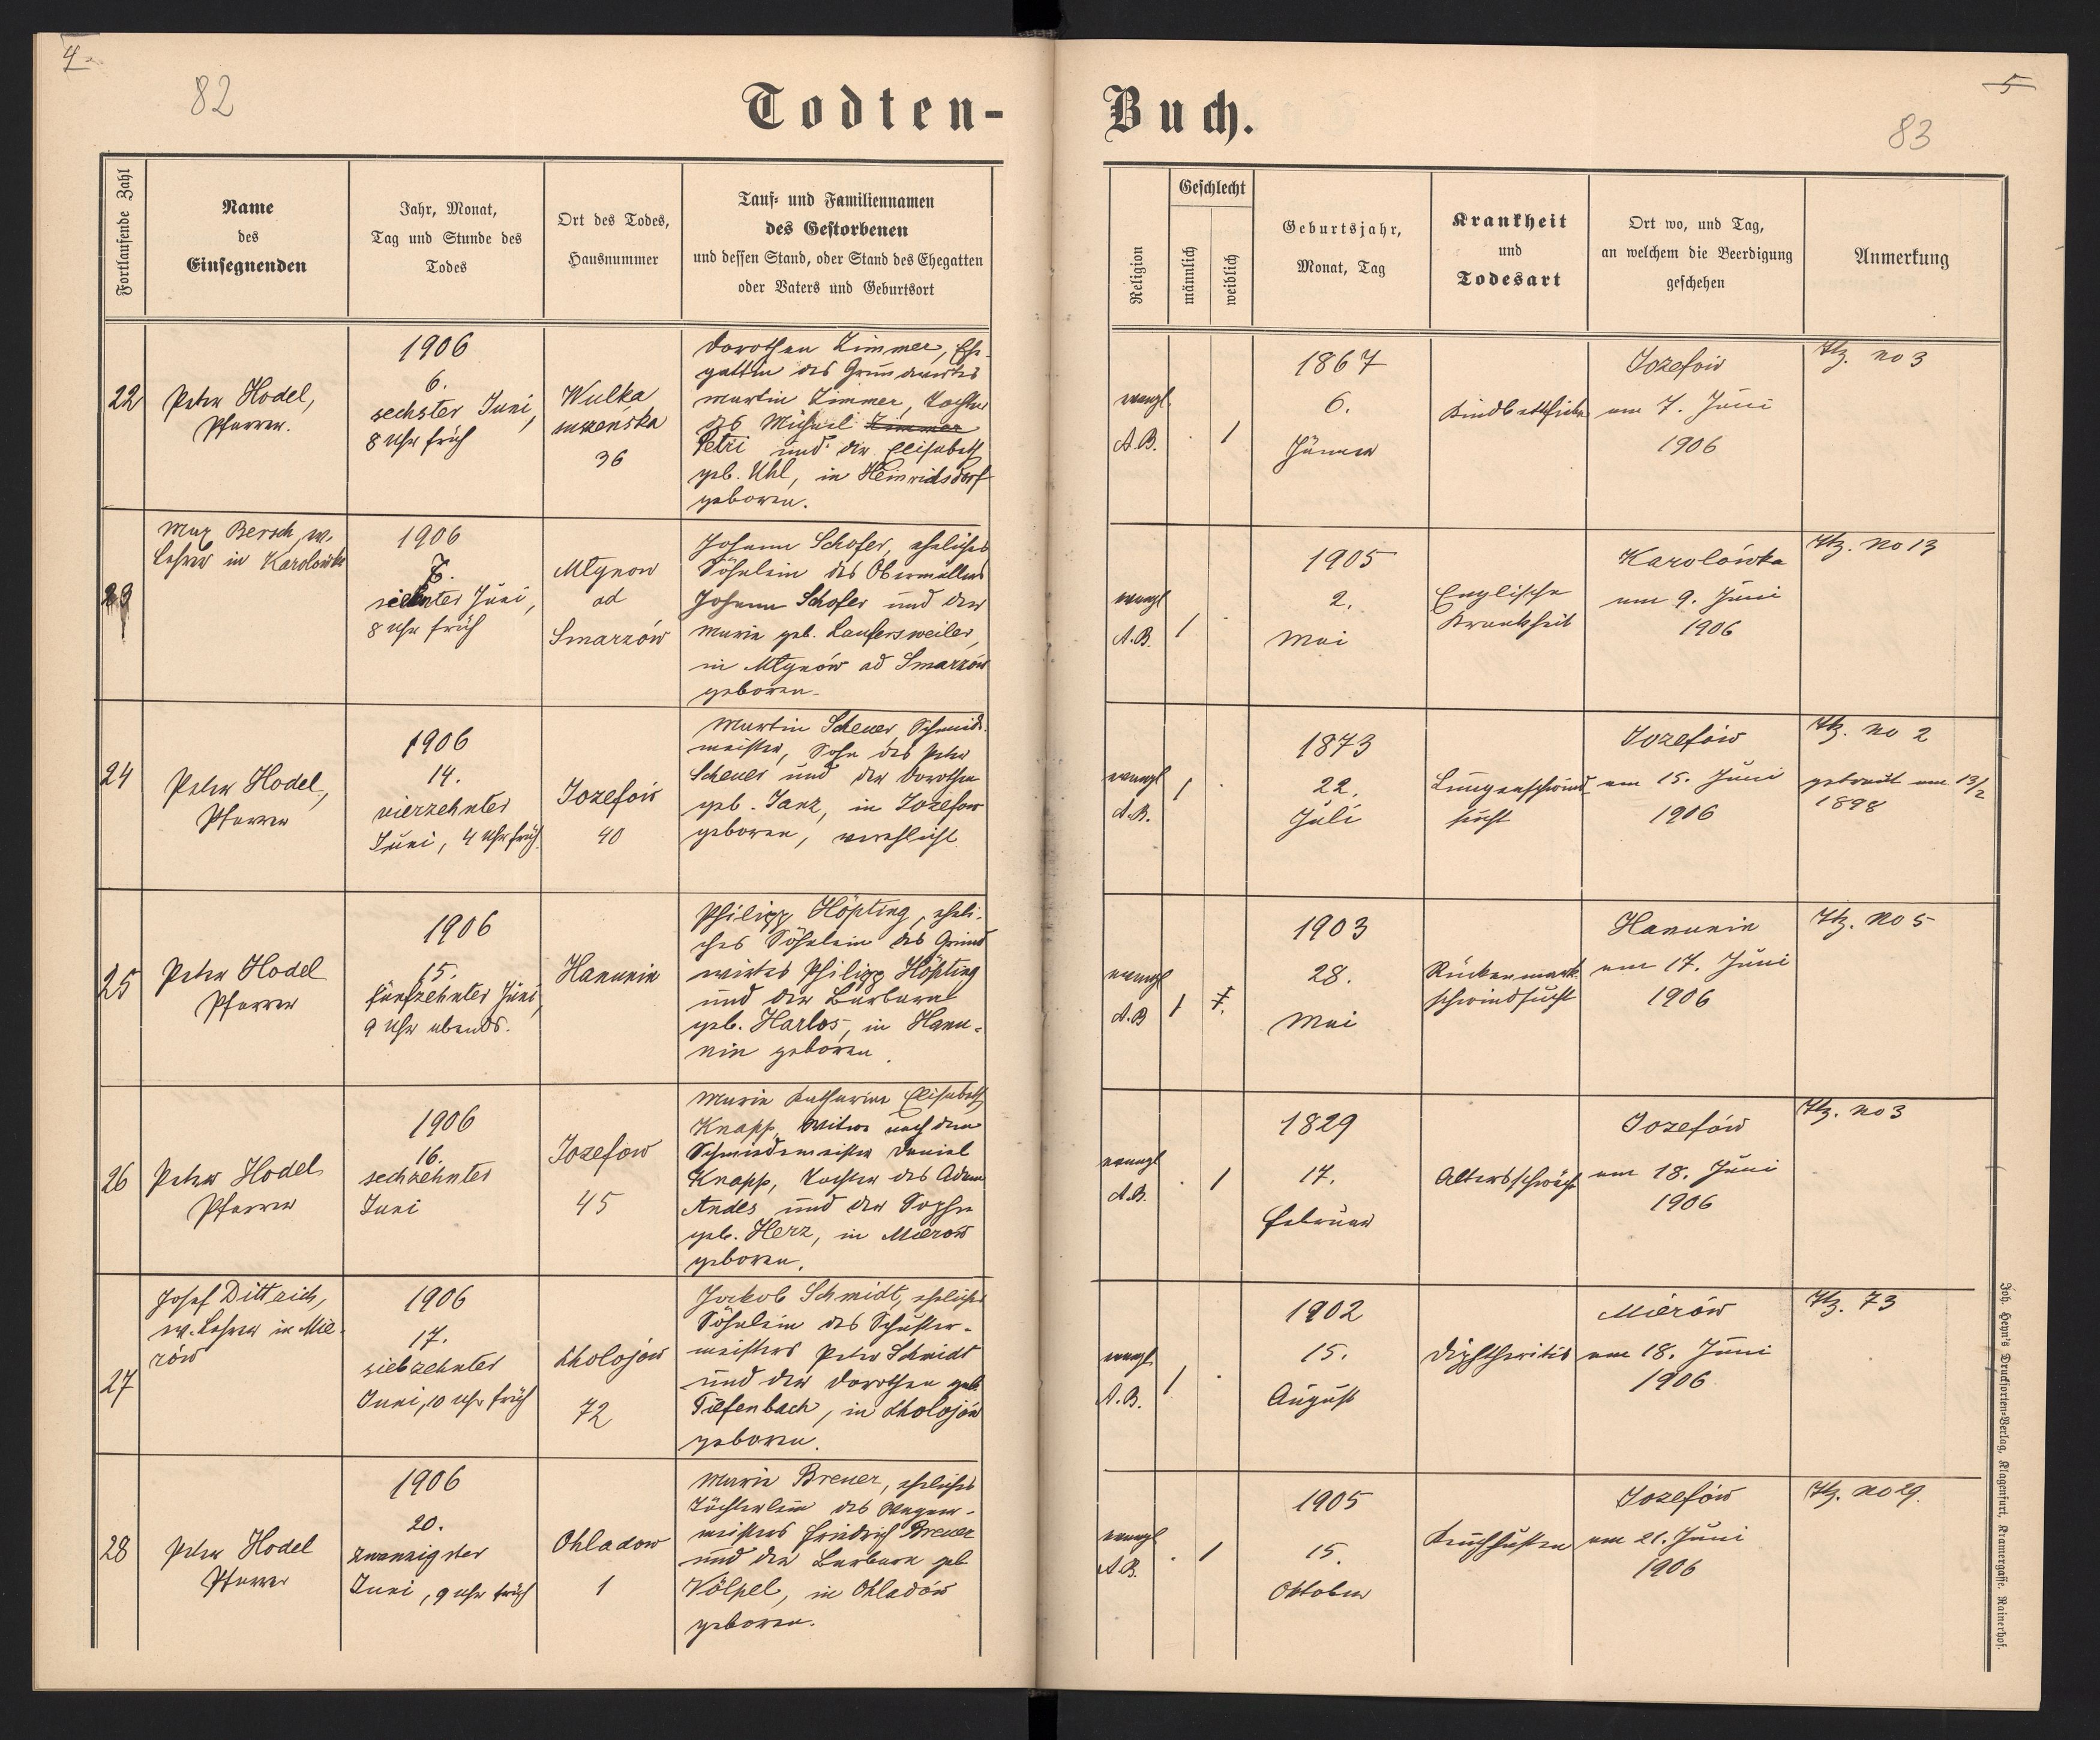 4.
82
Todten-
Fortlaufende Zahl
Name
des
Einsegnenden
Jahr, Monat,
Tag und Stunde des
Todes
Ort des Todes,
Hausnummer
Tauf- und Familiennamen
des Gestorbenen
und dessen Stand, oder Stand des Ehegatten
oder Vaters und Geburtsort
22
Peter Hodel,
Pfarrer.
1906
6.
sechster Juni,
8 Uhr früh
Wulka
suszeńska
36
Dorothea Zimmer, Ehe-
gattin des Grundwirtes
Martin Zimmer, Tochter
des Michael Zimmer
Petri und der Elisabeth
geb. Uhl, in Heinrichsdorf
geboren.
23
Max Bersch, ev.
Lehrer in Karolówka
1906
7.
siebenter Juni,
8 Uhr früh
Mlynow
ad
Smarzów
Johann Schofer, eheliches
Söhnlein des Obermüllers
Johann Schofer und der
Maria geb. Laufersweiler,
in Mlynów ad Smarzów
geboren.
24
Peter Hodel,
Pfarrer
1906
14.
vierzehnter
Juni, 4 Uhr früh.
Jozefów
40
Martin Scheuer, Schmied-
meister, Sohn des Peter
Scheuer und der Dorothea
geb. Janz, in Jozefow
geboren, verehlicht.
25
Peter Hodel
Pfarrer
1906
15.
fünfzehnter Juni,
9 Uhr abends.
Hanunin
Philipp Höpting, eheli-
ches Söhnlein des Grund
wirtes Philipp Höpting
und der Barbara
geb. Harlos, in Hanu-
nin geboren.
26
Peter Hodel
Pfarrer
1906
16.
sechzehnter
Juni
Jozefow
45
Maria Katharina Elisabeth
Knapp, Witwe nach dem
Schmiedemeister Daniel
Knapp, Tochter des Adam
Andes und der Sophie
geb. Herz, in Mierow
geboren.
27
Josef Dittrich,
ev. Lehrer in Mie-
rów
1906
17.
siebzehnter
Juni, 10 Uhr früh
Cholojow
72
Jackob Schmidt, eheliches
Söhnlein des Schuster-
meisters Peter Schmidt
und der Dorothea geb.
Tiefenbach, in Cholojów
geboren.
28
Peter Hodel
Pfarrer
1906
20.
zwanzigster
Juni, 9 Uhr früh
Ohladow
1
Maria Breuer, eheliches
Töchterlein des Wagner-
meisters Friedrich Breuer
und der Barbara geb
Völpel, in Ohladów
geboren.
5
83
Buch.
Religion
Geschlecht
männlich
weiblich
Geburtsjahr,
Monat, Tag
Krankheit
und
Todesart
Ort wo, und Tag,
an welchem die Beerdigung
geschehen
Anmerkung
evangl.
A.B.
1
1867
6.
Jänner
Kindbettfieber
Jozefów
am 7. Juni
1906
Ttz. no 3
evangl
A.B.
1
1905
2.
Mai
Englische
Krankheit
Karolówka
am 9. Juni
1906
Ttz. no 13
evangl
A.B.
1
1873
22.
Juli
Lungenschwind-
sucht
Jozefów
am 15. Juni
1906
Ttz. no 2
getraut am 13/2
1898
evangl
A.B
1
1903
28.
Mai
Rückenmark
schwindsucht
Hanunin
am 17. Juni
1906
Ttz. no 5
evangl
A.B.
1
1829
17.
Februar
Altersschwäche
Jozefów
am 18. Juni
1906
Ttz. no 3
evangl.
A.B.
1
1902
15.
August
Diphtheritis
Mierów
am 18. Juni
1906
Ttz. 73
evangl
A.B.
1
1905
15.
Oktober
Keuchhusten
Jozefów
am 21. Juni
1906
Ttz. no 29.
Joh. Heyn's Drucksorten-Verlag, Klagenfurt, Kramergasse, Rainerhof.